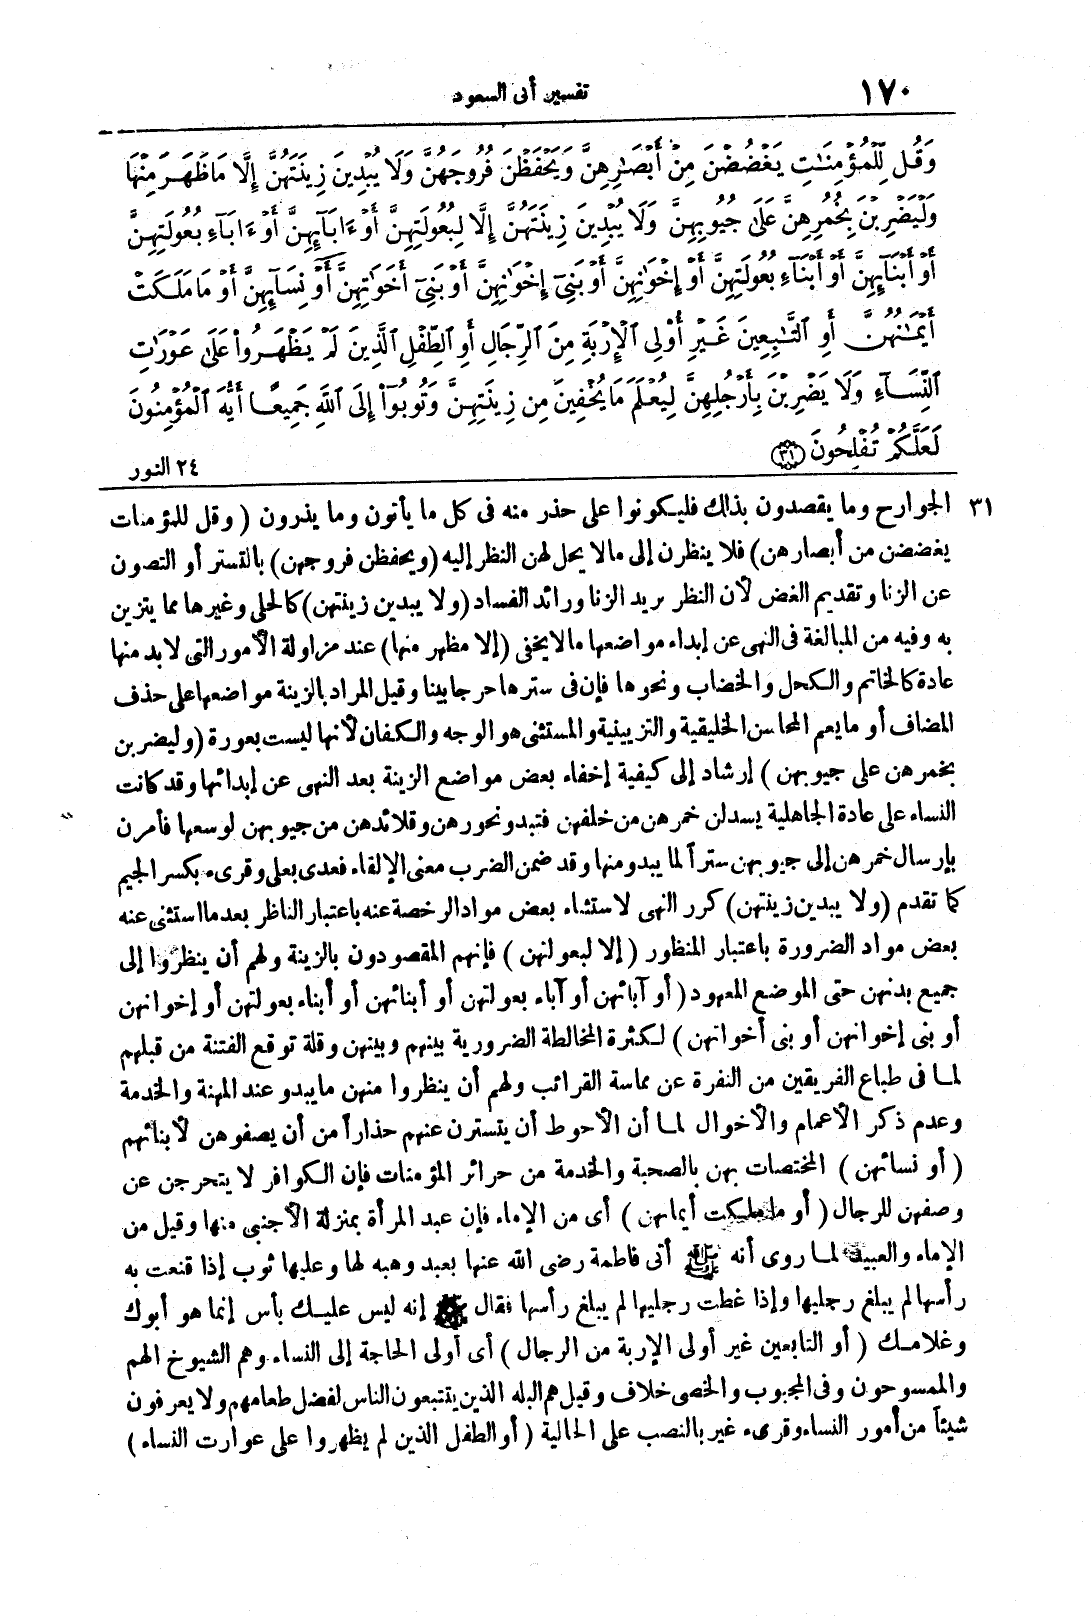 ١٧٠
تفسير أبى السعود
وَقُل لِّلْمُؤْمِنَٰتِ يَغْضُضْنَ مِنْ أَبْصَٰرِهِنَّ وَيَحْفَظْنَ فُرُوجَهُنَّ وَلَا يُبْدِينَ زِينَتَهُنَّ إِلَّا مَا ظَهَرَ مِنْهَا
وَلْيَضْرِبْنَ بِخُمُرِهِنَّ عَلَىٰ جُيُوبِهِنَّ وَلَا يُبْدِينَ زِينَتَهُنَّ إِلَّا لِبُعُولَتِهِنَّ أَوْ ءَابَآئِهِنَّ أَوْ ءَابَآءِ بُعُولَتِهِنَّ
أَوْ أَبْنَآئِهِنَّ أَوْ أَبْنَآءِ بُعُولَتِهِنَّ أَوْ إِخْوَٰنِهِنَّ أَوْ بَنِىٓ إِخْوَٰنِهِنَّ أَوْ بَنِىٓ أَخَوَٰتِهِنَّ أَوْ نِسَآئِهِنَّ أَوْ مَا مَلَكَتْ
أَيْمَٰنُهُنَّ أَوِ ٱلتَّٰبِعِينَ غَيْرِ أُوْلِى ٱلْإِرْبَةِ مِنَ ٱلرِّجَالِ أَوِ ٱلطِّفْلِ ٱلَّذِينَ لَمْ يَظْهَرُواْ عَلَىٰ عَوْرَٰتِ
ٱلنِّسَآءِ وَلَا يَضْرِبْنَ بِأَرْجُلِهِنَّ لِيُعْلَمَ مَا يُخْفِينَ مِن زِينَتِهِنَّ وَتُوبُوٓاْ إِلَى ٱللَّهِ جَمِيعًا أَيُّهَ ٱلْمُؤْمِنُونَ
لَعَلَّكُمْ تُفْلِحُونَ ٣١
٢٤ النور
٣١ الجوارح وما يقصدون بذلك فليكونوا على حذر منه فى كل ما يأتون وما يذرون ( وقل للمؤمنات
يغضضن من أبصارهن) فلا ينظرن إلى مالا يحل لهن النظر إليه (ويحفظن فروجهن) بالتستر أو التصون
عن الزنا وتقديم الغض لأن النظر بريد الزنا ورائد الفساد (ولا يبدين زينتهن) كالحلى وغيرها مما يتزين
به وفيه من المبالغة فى النهى عن إبداء مواضعها مالا يخفى (إلا مظهر منها) عند مزاولة الأمور التى لابد منها
عادة كالخاتم والكحل والخضاب ونحوها فإن فى سترها حرجا بينا وقيل المراد بالزينة مواضعها على حذف
المضاف أو ما يعم المحاسن الخليقية والتزيينية والمستثنى هو الوجه والكفان لأنها ليست بعورة (وليضربن
بخمرهن على جيوبهن ) إرشاد إلى كيفية إخفاء بعض مواضع الزينة بعد النهى عن إبدائها وقد كانت
النساء على عادة الجاهلية يسدلن خمرهن من خلفهن فتبدو نحورهن وقلائدهن من جيوبهن لوسعها فأمرن
بإرسال خمرهن إلى جيوبهن ستراً لما يبدو منها وقد ضمن الضرب معنى الإلقاء فعدى بعلى وقرىء بكسر الجيم
كما تقدم (ولا يبدين زينتهن) كرر النهى لاستثناء بعض مواد الرخصة عنه باعتبار الناظر بعد ما استثنى عنه
بعض مواد الضرورة باعتبار المنظور ( إلا لبعولتهن ) فإنهم المقصودون بالزينة ولهم أن ينظروا إلى
جميع بدنهن حتى الموضع المعهود ( أو آبائهن أو آباء بعولتهن أو أبنائهن أو أبناء بعولتهن أو إخوانهن
أو بنى إخوانهن أو بنى أخوانهن ) لكثرة المخالطة الضرورية بينهم وبينهن وقلة توقع الفتنة من قبلهم
لما فى طباع الفريقين من النفرة عن مماسة القرائب ولهم أن ينظروا منهن ما يبدو عند المهنة والخدمة
وعدم ذكر الأعمام والأخوال لما أن الأحوط أن يتسترن عنهم حذاراً من أن يصفوهن لأبنائهم
( أو نسائهن ) المختصات بهن بالصحبة والخدمة من حرائر المؤمنات فإن الكوافر لا يتحرجن عن
وصفهن للرجال ( أو ما ملكت أيمانهن ) أى من الإماء فإن عبد المرأة بمنزلة الأجنبى منها وقيل من
الإماء والعبيد لما روى أنه ﷺ أتى فاطمة رضى الله عنها بعبد وهبه لها وعليها ثوب إذا قنعت به
رأسها لم يبلغ رجليها وإذا غطت رجليها لم يبلغ رأسها فقال ﷺ إنه ليس عليك بأس إنما هو أبوك
وغلامك ( أو التابعين غير أولى الإربة من الرجال ) أى أولى الحاجة إلى النساء وهم الشيوخ الهم
والممسوحون وفى المجبوب والخصى خلاف وقيل هم البله الذين يتتبعون الناس لفضل طعامهم ولا يعرفون
شيئاً من أمور النساء وقرىء غير بالنصب على الحالية ( أو الطفل الذين لم يظهروا على عوارت النساء )